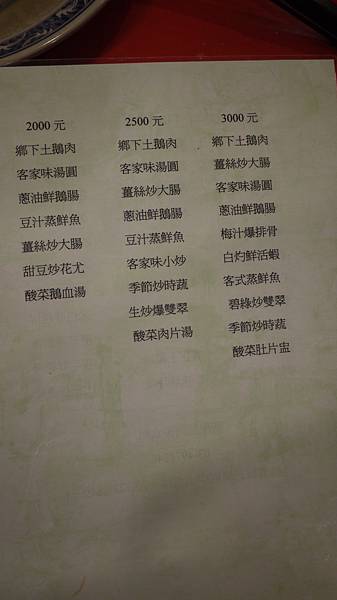 2000 元
鄉下土鵝肉
客家味湯圓
蔥油鮮鵝腸
豆汁蒸鮮魚
薑絲炒大腸
甜豆炒花尤
酸菜鵝血湯
2500 元
鄉下土鵝肉
客家味湯圓
薑絲炒大腸
蔥油鮮鵝腸
豆汁蒸鮮魚
客家味小炒
季節炒時蔬
生炒爆雙翠
酸菜肉片湯
3000 元
鄉下土鵝肉
薑絲炒大腸
客家味湯圓
蔥油鮮鵝腸
梅汁爆排骨
白灼鮮活蝦
客式蒸鮮魚
碧綠炒雙翠
季節炒時蔬
酸菜肚片盅